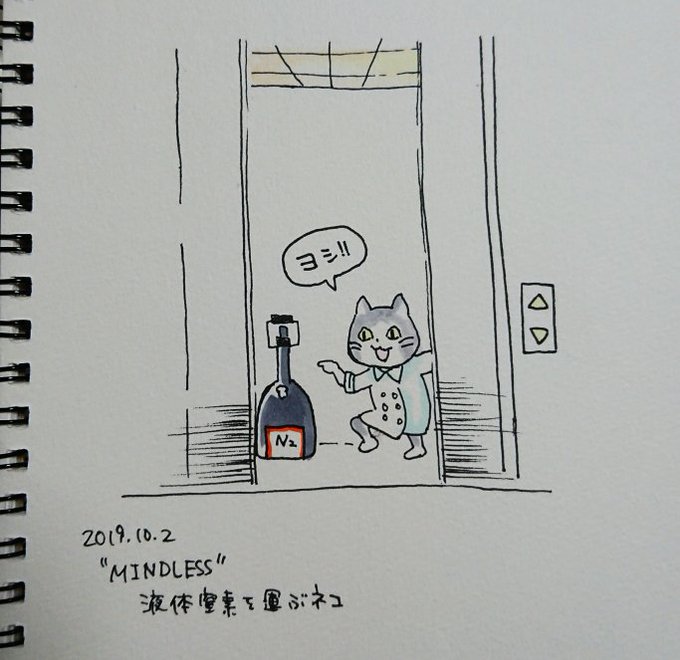 ヨシ!!
N₂
2019.10.2
"MINDLESS"
液体窒素を運ぶネコ